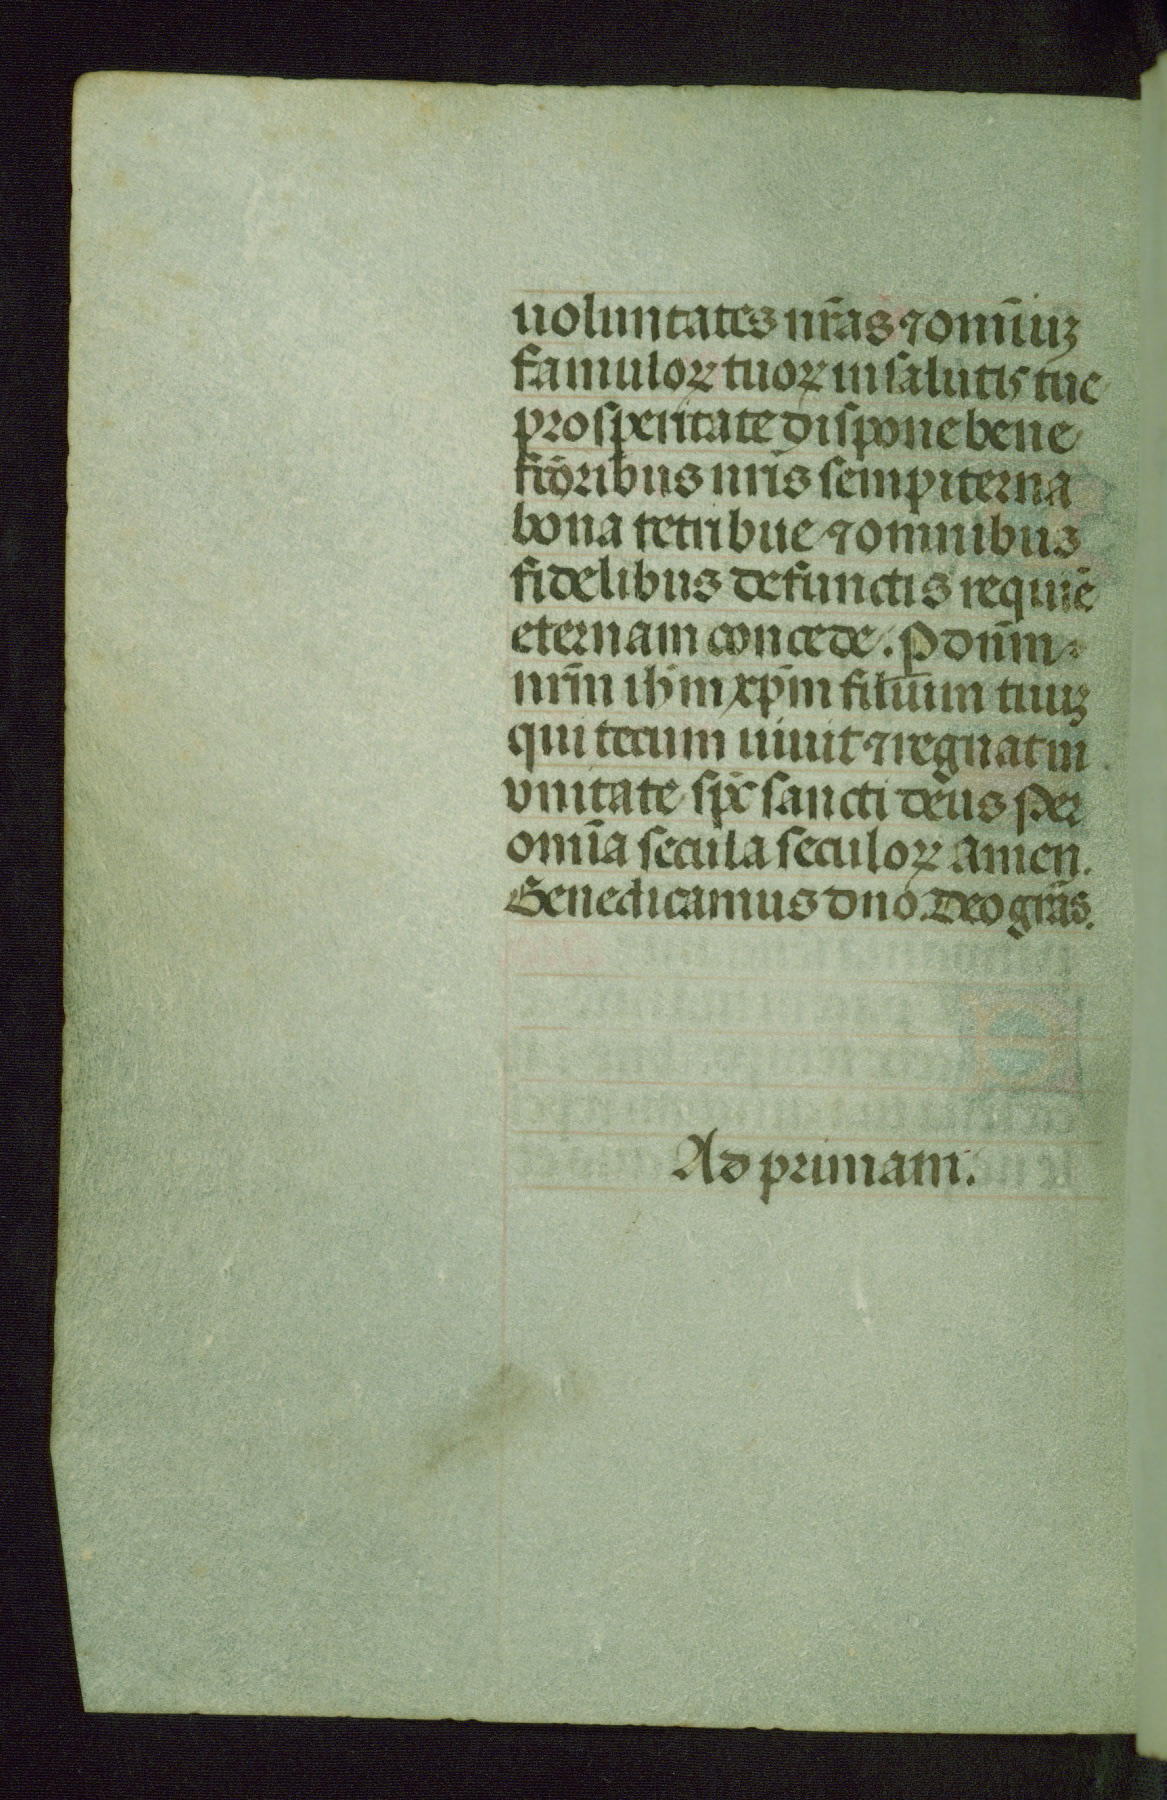 uoluntates nr̃as ⁊ omĩuꝫ
famuloꝝ tuoꝝ in salutis tue
prosperitate dispone bene
fcõribus nr̃is sempiterna
bona retribue ⁊ omnibus
fidelibus defunctis requiẽ
eternam concede. P̲ dñm
nr̃m ihm̃ xp̃m filium tuuꝫ
qui tecum uiuit ⁊ regnat in
vnitate sp̃c sancti deus Per
om̃ia secula seculoꝝ amen.
Benedicamus dño. Deo gr̃as.
Ad primam.